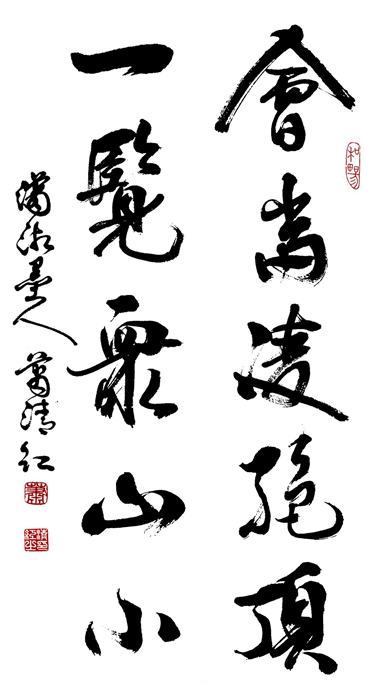 會當凌絕頂
一覽眾山小
瀟湘墨人 蕭清紅